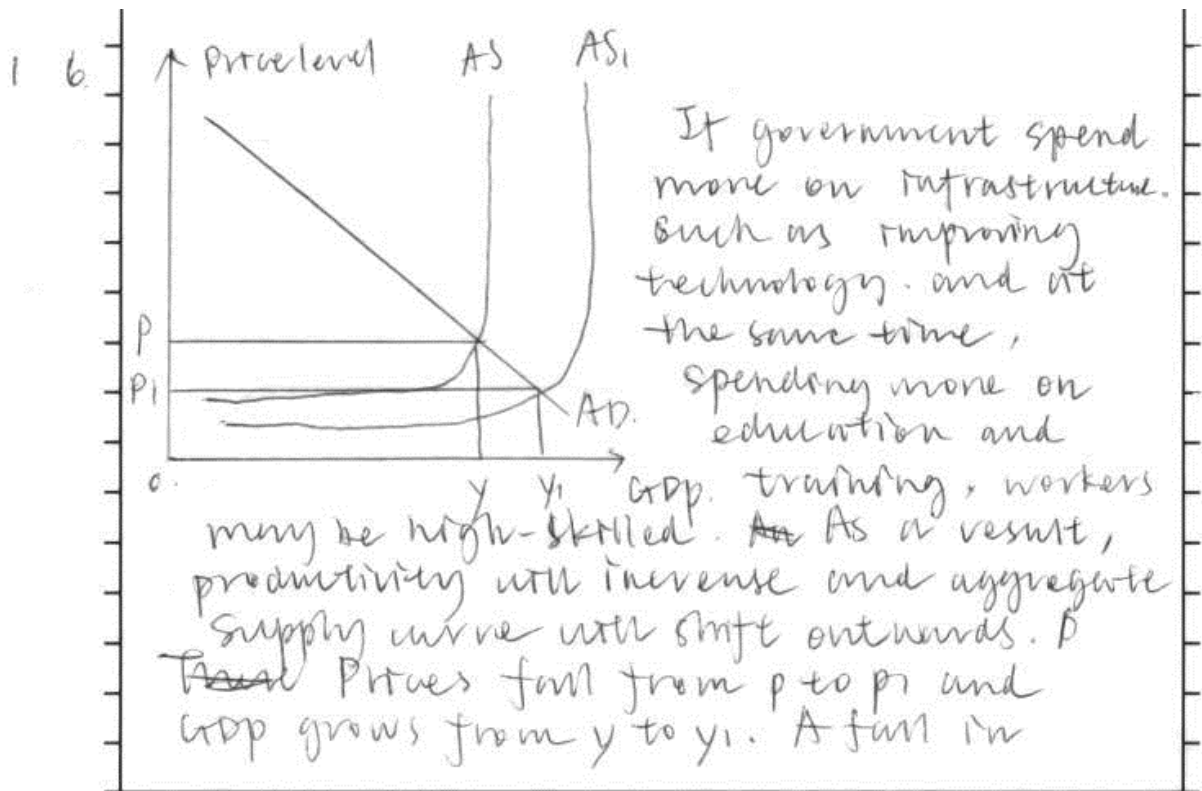 1 6.
Price level AS AS1
If government spend
more on infrastructure.
such as improving
technology. and at
the same time,
P
P1
spending more on
AD.
education and
0. y y1 GDP. training, workers
may be high-skilled. As a result,
productivity will increase and aggregate
supply curve will shift outwards. P
Prices fall from p to p1 and
GDP grows from y to y1. A fall in